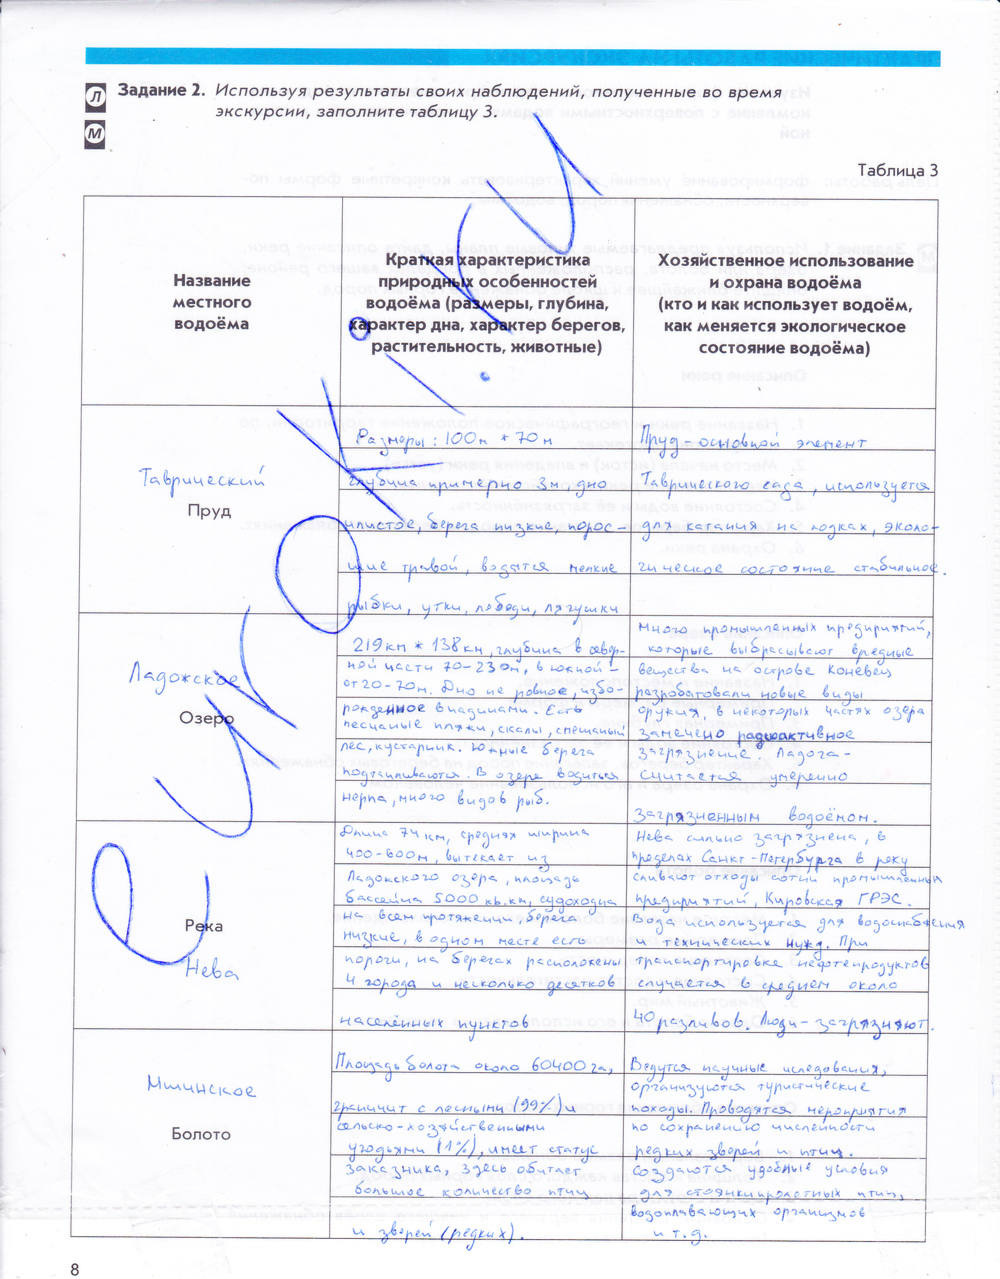 Л
М
Задание 2. Используя результаты своих наблюдений, полученные во время
экскурсии, заполните таблицу 3.
Таблица 3
Название
местного
водоёма
Краткая характеристика
природных особенностей
водоёма (размеры, глубина,
характер дна, характер берегов,
растительность, животные)
Хозяйственное использование
и охрана водоёма
(кто и как использует водоём,
как меняется экологическое
состояние водоёма)
Таврический
Пруд
Размеры: 100м * 70м
глубина примерно 3м дно
илистое, берега низкие, порос-
шие травой, водятся мелкие
рыбки, утки, лебеди, лягушки
Пруд-основной элемент
Таврического сада, используется
для катания на лодках, эколо-
гическое состояние стабильное.
Ладожское
Озеро
219км * 138км, глубина в север-
ной части 70-230м, в южной -
от 20-70м. Дно не ровное, избо-
рожденное впадинами. Есть
песчаные пляжи, скалы, смешаный
лес, кустарник. Южные берега
подтапливаются. В озере водиться
нерпа, много видов рыб.
много промышленных предприятий,
которые выбрасывают вредные
вещества на острове Коневец
разрабатовали новые виды
оружия, в некоторых частях озера
замечено радиоактивное
загрязнение Ладога-
считается умеренно
загрязненным водоёмом.
Река
Нева
Длина 74 км, средняя ширина
400-600м, вытекает из
Ладожского озера, площадь
бассейна 5000 кв.км, судоходна
на всем протяжении, берега
низкие, в одном месте есть
пороги, на берегах расположены
4 города и несколько десятков
населённых пунктов
Нева сильно загрязнена, в
пределах Санкт-Петербурга в реку
сливают отходы сотни промышленных
предприятий, Кировская ГРЭС.
Вода используется для водоснабжения
и технических нужд. При
транспортировке нефтепродуктов
случается в среднем около
40 разливов. Люди-загрязняют.
Мшинское
Болото
Площадь болота около 60400 га,
граничит с лесными (99%) и
сельско-хозяйственными
угодьями (1%), имеет статус
заказника, здесь обитает
большое количество птиц
и зверей (редких).
Ведутся научные иследования,
организуются туристические
походы. Проводятся мероприятия
по сохранению численности
редких зверей и птиц.
создаются удобные условия
для стоянки пролетных птиц,
водоплавающих организмов
и т.д.
e urok i.ru
8